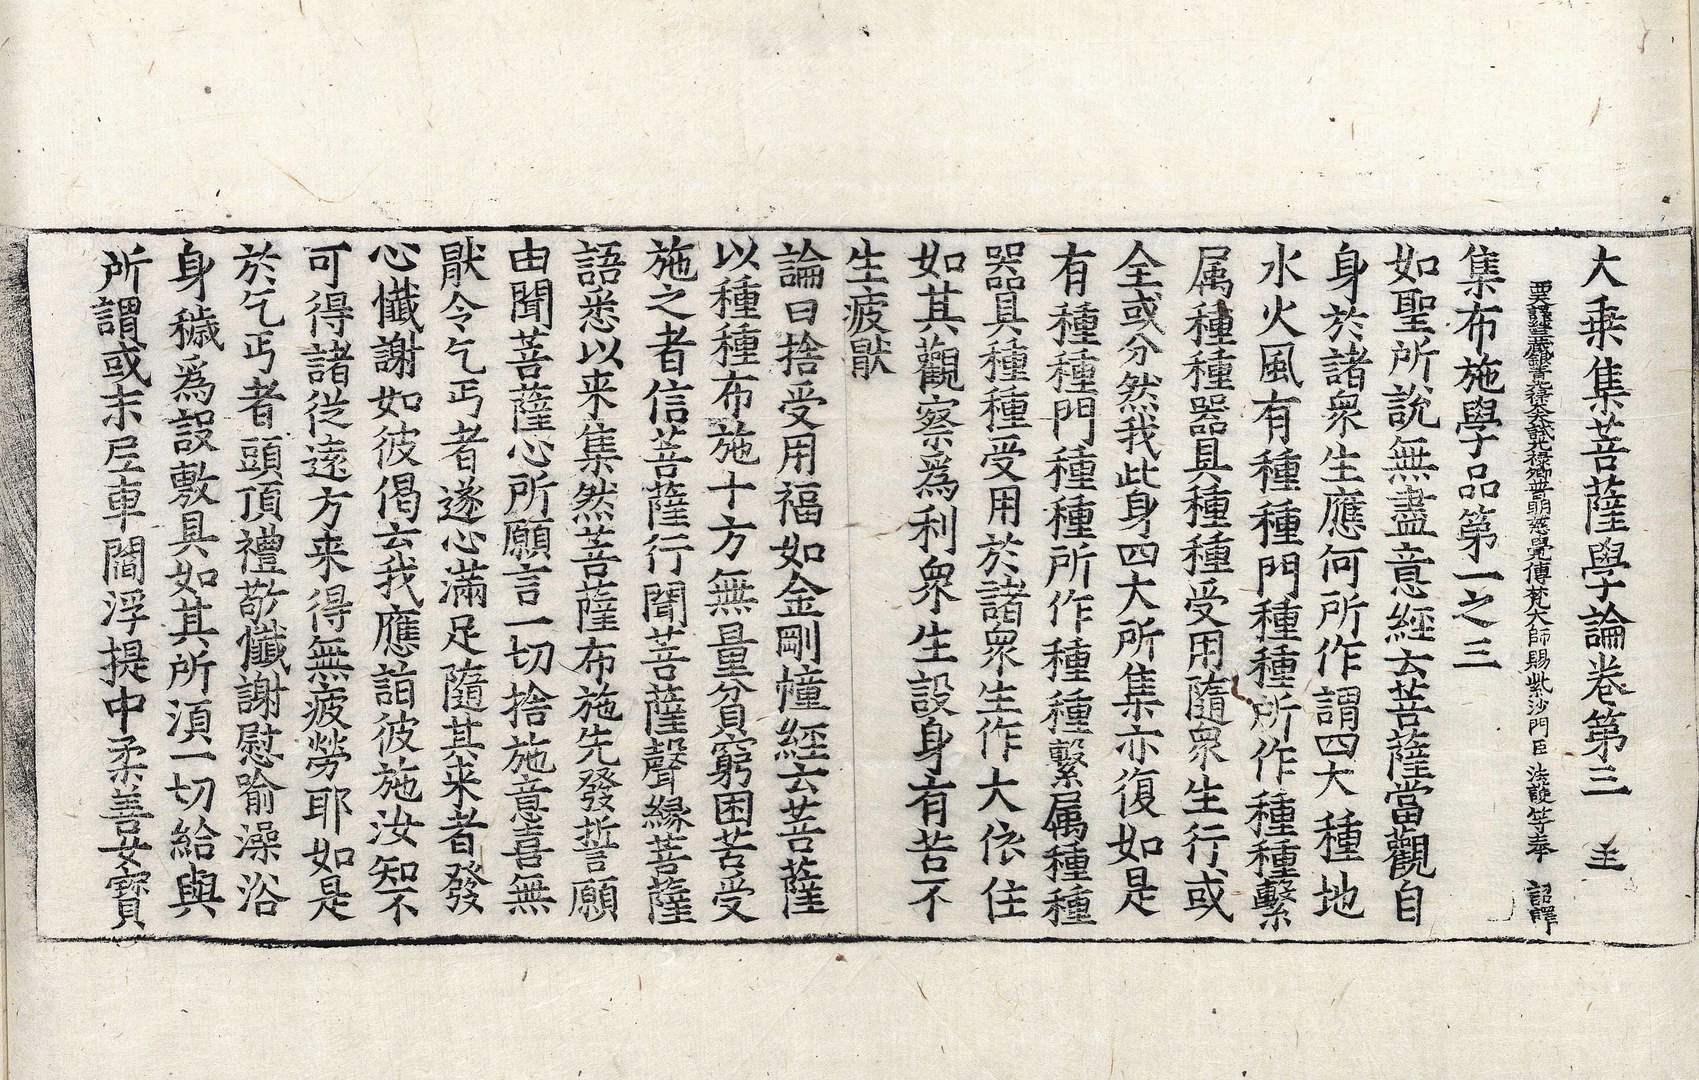 大乗集菩薩學論卷第三 圭
西天譯經三藏銀青光禄大夫試光禄卿普明慈覺傳梵大師賜紫沙門臣 法護等奉 詔譯
集布施學品第一之三
如聖所說無盡意經云菩薩當觀自
身於諸衆生應何所作謂四大種地
水火風有種種門種種所作種種繫
属種種器具種種受用隨衆生行或
全或分然我此身四大所集亦復如是
有種種門種種所作種種繫属種種
器具種種受用於諸衆生作大依住
如其觀察爲利衆生設身有苦不
生疲猒
論曰捨受用福如金剛幢經云菩薩
以種種布施十方無量貧窮困苦受
施之者信菩薩行聞菩薩聲緣菩薩
語悉以来集然菩薩布施先發誓願
由聞菩薩心所願言一切捨施意喜無
猒令乞丐者遂心滿足隨其来者發
心懺謝如彼偈云我應詣彼施汝知不
可得諸従遠方来得無疲勞耶如是
於乞丐者頭頂禮敬懺謝慰喻澡浴
身穢爲設敷具如其所湏一切給與
所謂或末尼車閻浮提中柔善女寳